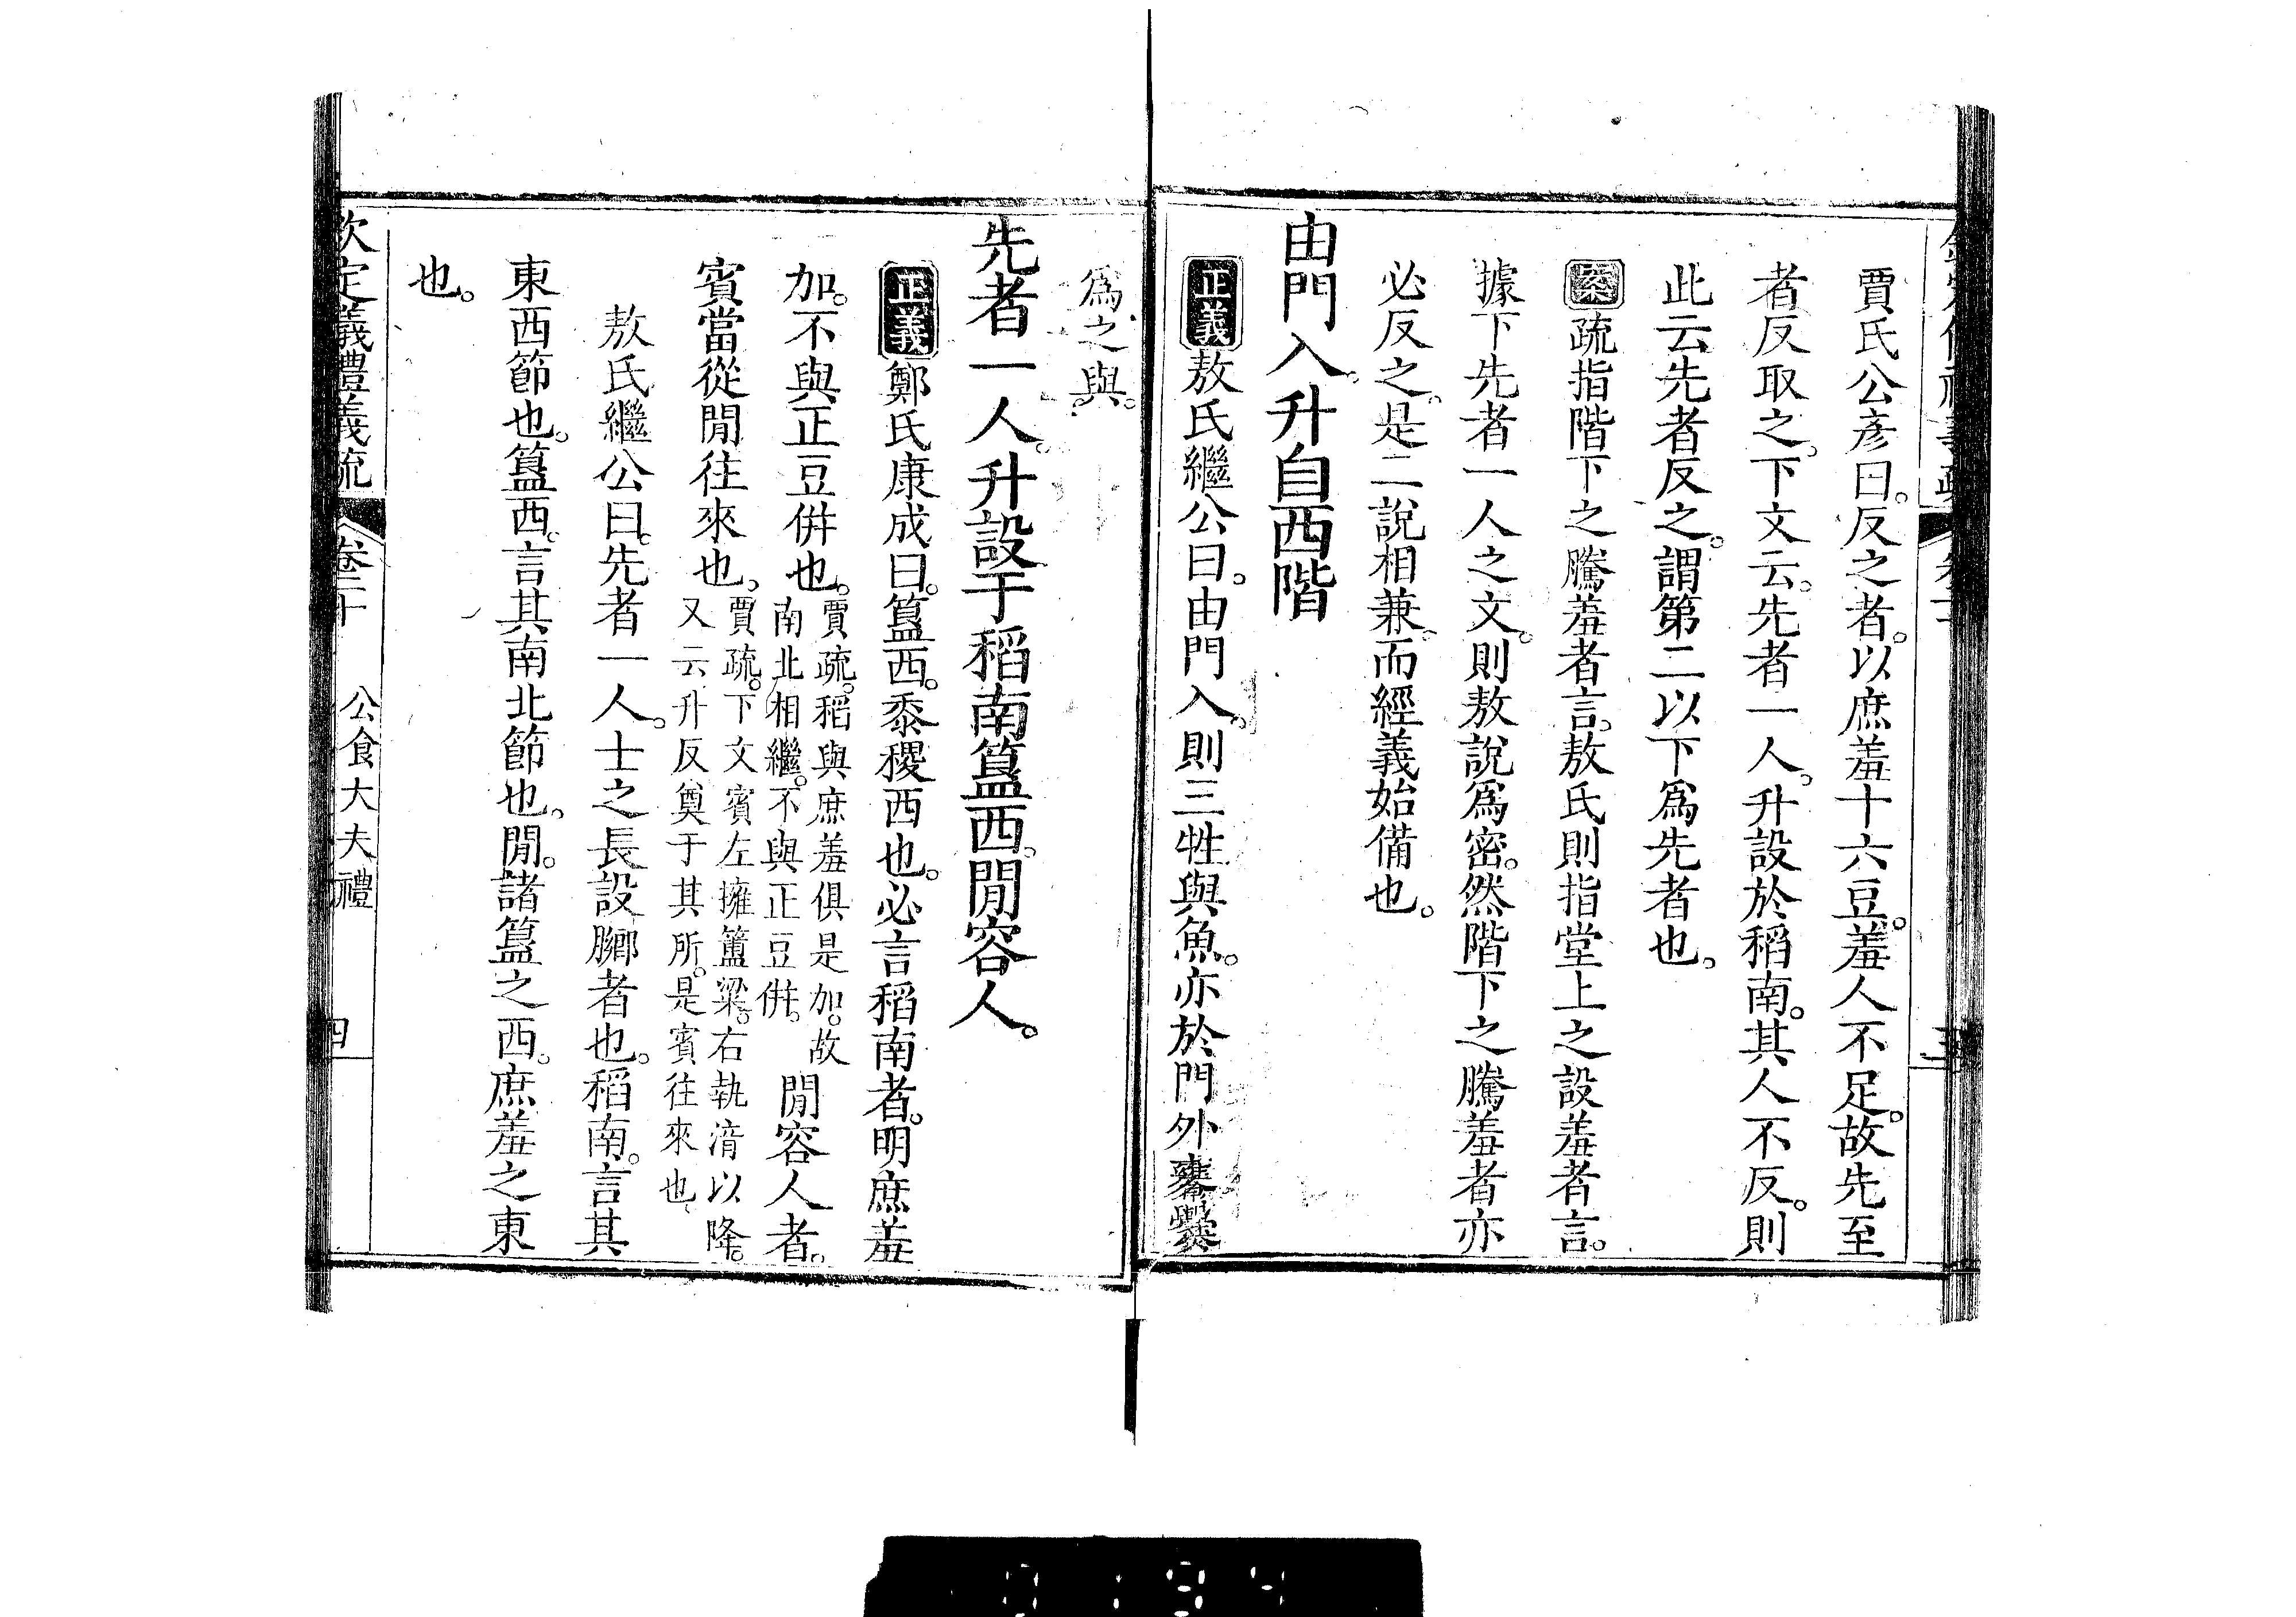 賈氏公彥曰。反之者。以庶羞十六豆。羞人不足。故先至
者反取之。下文云。先者一人。升設於稻南。其人不反。則
此云先者反之。謂第二以下爲先者也。
案疏指階下之騰羞者言。敖氏則指堂上之設羞者言。
據下先者一人之文。則敖說爲密。然階下之騰羞者亦
必反之。是二說相兼。而經義始備也。
由門入。升自西階
正義敖氏繼公曰。由門入。則三牲與魚。亦於門外饔爨
爲之與。
先者一人。升設于稻南簋西。閒容人。
正義鄭氏康成曰。簋西。黍稷西也。必言稻南者。明庶羞
加。不與正豆倂也。賈疏。稻與庶羞俱是加。故
南北相繼。不與正豆倂。閒容人者。
賓當從閒往來也。賈疏。下文賓左擁簠粱。右執湆以降。
又云升反奠于其所。是賓往來也。
敖氏繼公曰。先者一人。士之長設膷者也。稻南。言其
東西節也。簋西。言其南北節也。閒。諸簋之西。庶羞之東
也。
欽定儀禮義疏 卷二十 公食大夫禮 四